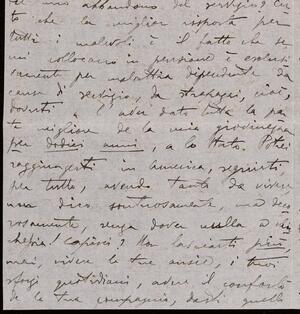 del mio abbandono del servizio? Cer
to che la miglior risposta per
tutti i malevoli è il fatto che se
mi collocano in pensione è esclusi
vamente per malattia dipendente da
causa di servizio, da strapazzi, cioè,
dovuti a, aver dato tutta la par
te migliore de la mia giovinezza
per dodici anni, a lo Stato. Potrei
raggiungerti in America, seguirti
per tutto, avendo tanto da vivere
non dico sontuosamente, ma deco
rosamente senza dover nulla a
Capisci? Non lasciarti più
mai, vivere le tue ansie, i tuoi
sforzi quotidiani, avere il conforto
de la tua compagnia, darti quello